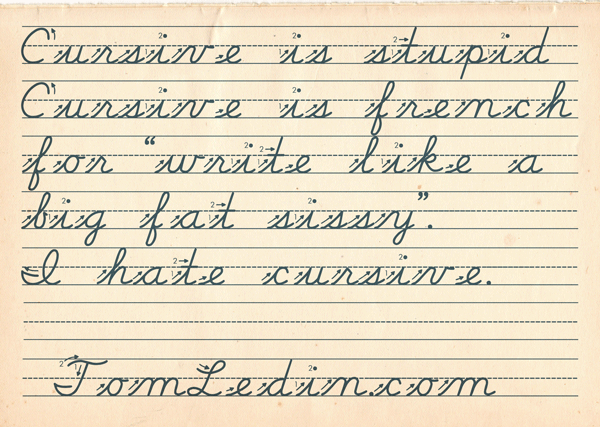 Cursive is stupid
Cursive is french
for “write like a
big fat sissy”.
I hate cursive.
TomLedin.com